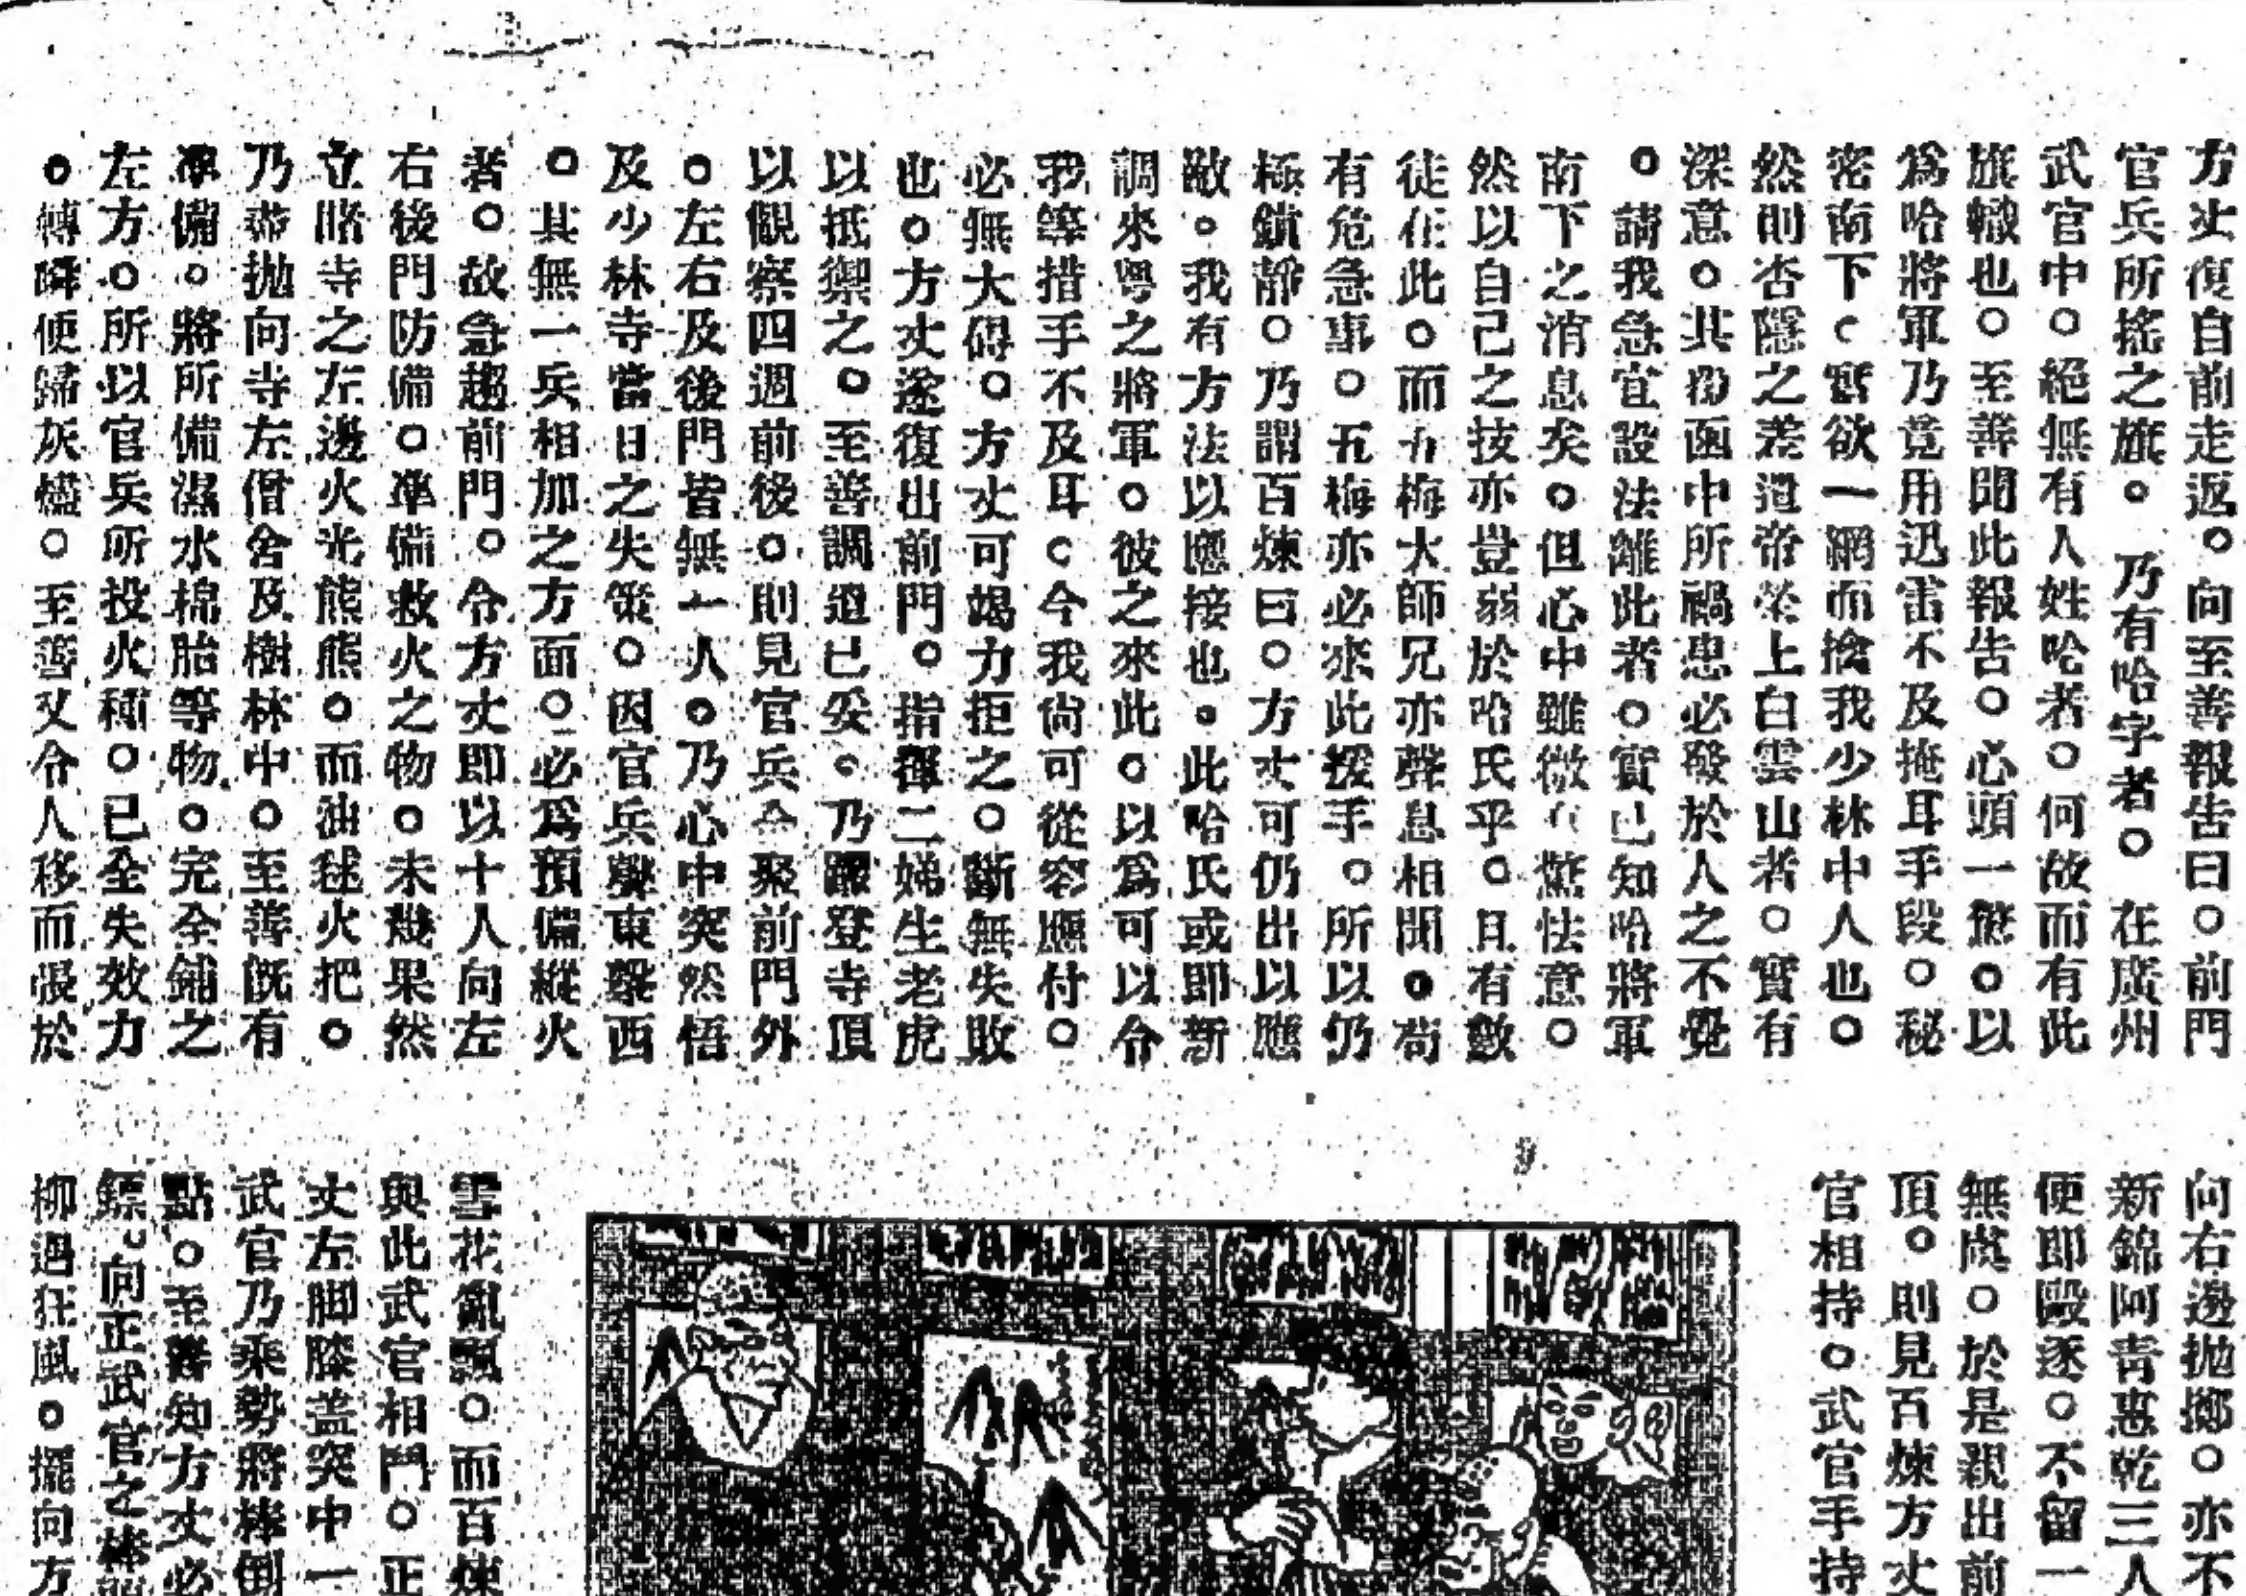 方丈復自前走返。向至善報告曰。前門
官兵所搖之旗。乃有哈字者。在廣州
武官中。絕無有人姓哈者。何故而有此
旗轍也。至善聞此報告。心頭一驚。以
爲哈將軍乃竟用迅雷不及掩耳手段。秘
密南下。暫欲一網而擒我少林中人也。
然則杏隱之差遣帝榮上白雲山者。實有
深意。其函中所禍患必發於人之不覺
。請我急宜設法離此者。實已知哈將軍
南下之消息矣。但心中雖微有驚怯意。
然以自己之技亦豈弱於哈氏乎。且有數
徒在此。而五梅大師兄亦聲息相聞。苟
有危急事。五梅亦必來此援手。所以仍
極鎮靜。乃謂百煉曰。方丈可仍出以應
敵。我有方法以應接也。此哈氏或即新
調來粤之將軍。彼之來此。以爲可以令
我等措手不及耳。今我尙可從容應付。
必無大碍。方丈可竭力拒之。斷無失敗
也。方丈遂復出前門。指揮二娣生老虎
以抵禦之。至善調遣已妥。乃躍登寺頂
以觀察四週前後。則見官兵全聚前門外
。左右及後門皆無一人。乃心中突然悟
及少林寺當日之失策。因官兵聲東擊西
。其無一兵相加之方面。必爲預備縱火
者。故急趨前門。令方丈即以十人向左
右後門防備。準備救火之物。未幾果然
立睹寺之左邊火光熊熊。而油毬火把。
乃齊拋向寺左僧舍及樹林中。至善旣有
準備。將所備濕水棉胎等物。完全鋪之
左方。所以官兵所投火種。已全失效力
。轉瞬便歸灰燼。至善又令人移而張於
向右邊拋擲。亦不
新錦阿青惠乾三人
便即毆逐。不留一
無處。於是親出前
頂。則見百煉方丈
官相持。武官手持
雪花亂飄。而百煉
與此武官相鬥。正
丈左脚膝盖突中一
武官乃乘勢將棒倒
點。至善知方丈必
鏢。向正武官之棒
柳遇狂風。擺向方